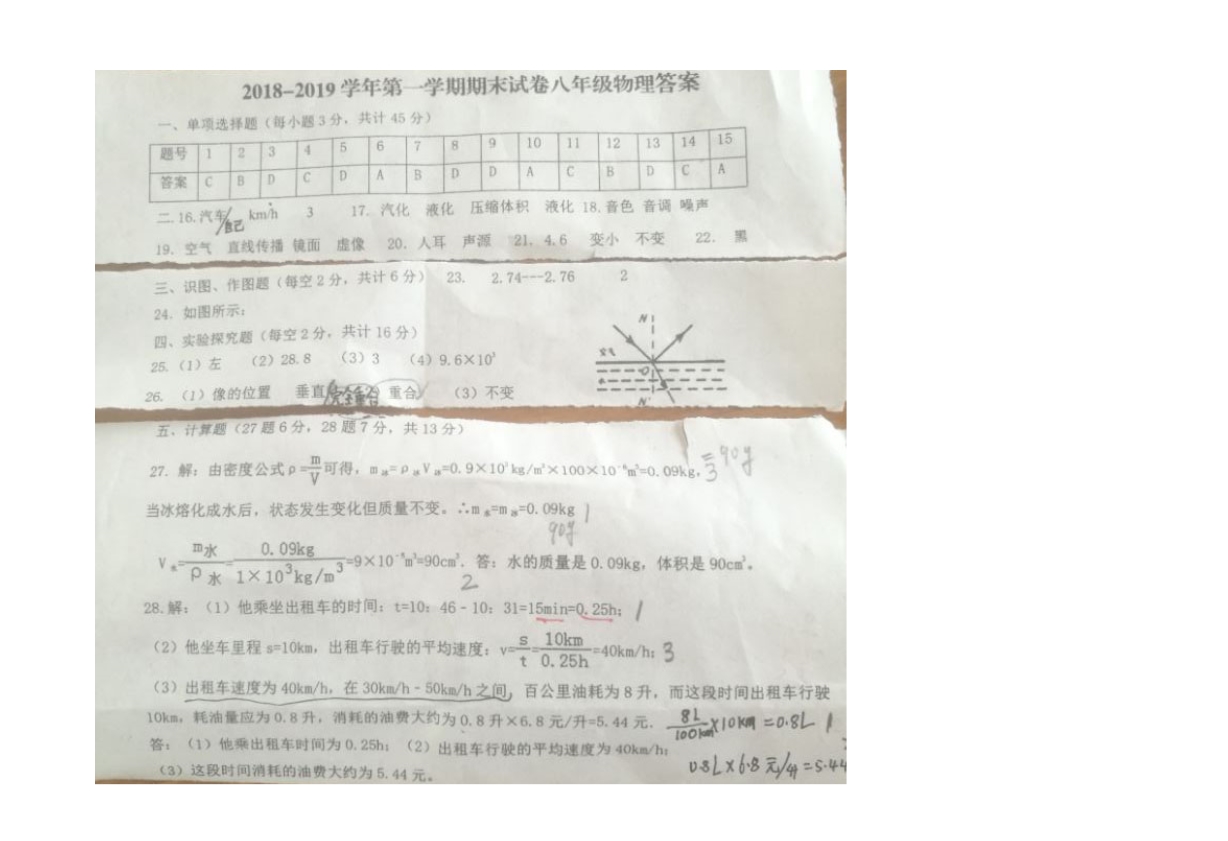 2018-2019 学年第一学期期末试卷八年级物理答案
一、单项选择题（每小题3分，共计45分）
题号 1 2 3 4 5 6 7 8 9 10 11 12 13 14 15
答案 C B D C D A B D D A C B D C A
二.16.汽车/自己 km/h 3 17. 汽化 液化 压缩体积 液化 18.音色 音调 噪声
19. 空气 直线传播 镜面 虚像 20. 人耳 声源 21. 4.6 变小 不变 22. 黑
三、识图、作图题（每空2分，共计6分） 23. 2.74---2.76 2
24. 如图所示：
N
空气
O
水
N'
四、实验探究题（每空2分，共计16分）
25.（1）左 （2）28.8 （3）3 （4）9.6×10³
26.（1）像的位置 垂直（完全重合 重合） （3）不变
五、计算题（27题6分，28题7分，共13分）
27. 解：由密度公式ρ=m/V可得，m冰=ρ冰V冰=0.9×10³kg/m³×100×10⁻⁶m³=0.09kg, =90g 3
当冰熔化成水后，状态发生变化但质量不变。∴m水=m冰=0.09kg 1
90g
V水=m水/ρ水=0.09kg/1×10³kg/m³=9×10⁻⁵m³=90cm³. 答：水的质量是0.09kg，体积是90cm³。
2
28.解：（1）他乘坐出租车的时间：t=10：46-10：31=15min=0.25h； 1
（2）他坐车里程 s=10km，出租车行驶的平均速度：v=s/t=10km/0.25h=40km/h； 3
（3）出租车速度为40km/h，在30km/h-50km/h之间，百公里油耗为8升，而这段时间出租车行驶
10km，耗油量应为0.8升，消耗的油费大约为0.8升×6.8元/升=5.44元. 8L/100km×10km=0.8L 1
答：（1）他乘出租车时间为0.25h；（2）出租车行驶的平均速度为40km/h；
（3）这段时间消耗的油费大约为5.44元。 0.8L×6.8元/升=5.44